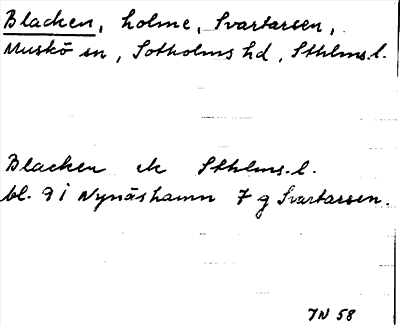 Blacken, holme, Svartarsen,
Muskö sn, Sotholms hd, Sthlms.l.
Blacken ek Sthlms.l.
bl. 9 i Nynäshamn 7 g Svartarsen.
JN 58